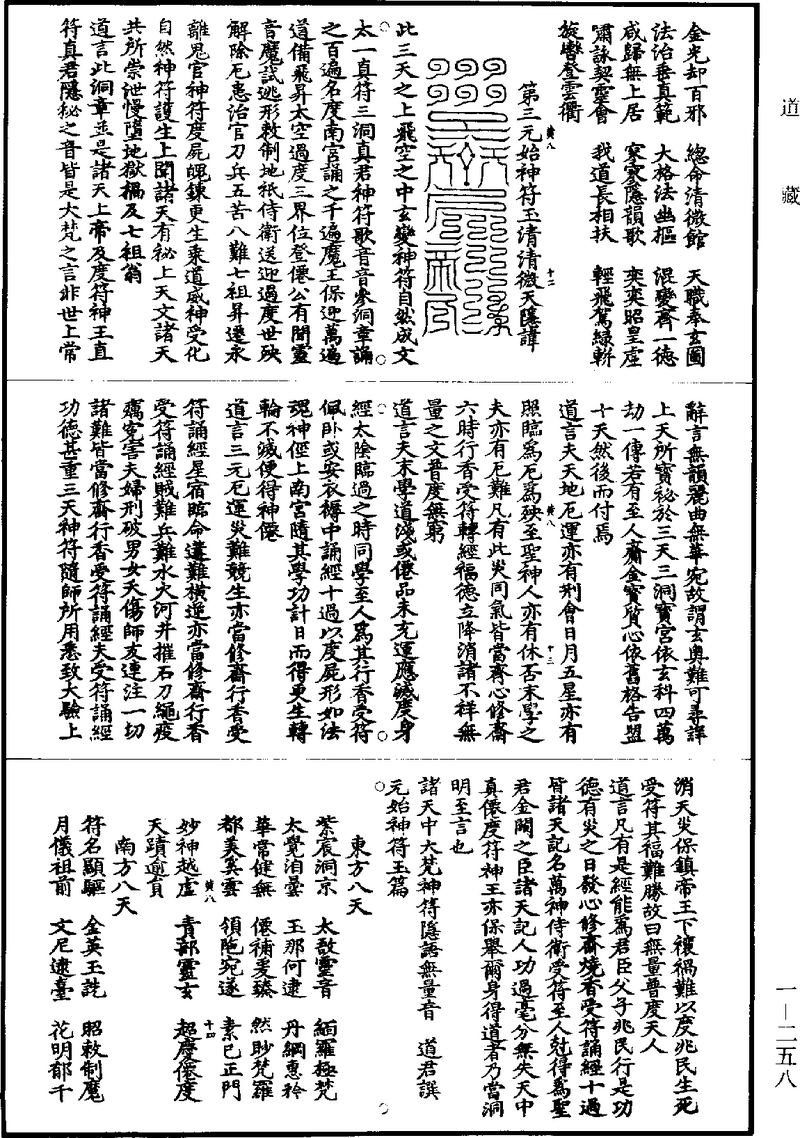 道藏
金光却百邪　總命清微館　天職奉玄圖
法治垂真範　大格法幽樞　混變齊一德
咸歸無上居　寥寥隱韻歌　奕奕昭皇虛
肅詠契靈會　我道長相扶　輕飛駕綠軿
旋轡登雲衢
第三元始神符玉清清微天隱諱
此三天之上飛空之中玄變神符自然成文
太一真符三洞真君神符歌音音參洞章誦
之百遍名度南宮誦之千遍魔王保迎萬遍
道備飛昇太空過度三界位登僊公有聞靈
音魔試逃形敕制地祇侍衛送迎過度世殃
解除厄患治官刀兵五苦八難七祖昇遷永
離鬼官神符度屍魄鍊更生乘道威神受化
自然神符護生上聞諸天有秘上天文諸天
共所崇泄慢墮地獄禍及七祖翁
道言此洞章並是諸天上帝及度符神王直
符真君隱秘之音皆是大梵之言非世上常
辭言無韻麗曲無華宛故謂玄奧難可尋詳
上天所寶秘於三天三洞寶宮依玄科四萬
劫一傳若有至人齎金寶質心依舊格告盟
十天然後而付焉
道言夫天地厄運亦有刑會日月五星亦有
照臨為厄為殃至聖神人亦有休否末學之
夫亦有厄難凡有此災同氣皆當齊心修齋
六時行香受符轉經福德立降消諸不祥無
量之文普度無窮
道言夫末學道淺或僊品未充運應滅度身
經太陰臨過之時同學至人為其行香受符
佩臥或安衣襟中誦經十過以度屍形如法
魂神徑上南宮隨其學功計日而得更生轉
輪不滅便得神僊
道言三元厄運災難競生亦當修齋行香受
符誦經星宿臨命遭難橫逆亦當修齋行香
受符誦經賊難兵難水火河井摧石刀繩疫
癘寃害夫婦刑破男女夭傷師友連注一切
諸難皆當修齋行香受符誦經夫受符誦經
功德甚重三天神符隨師所用悉致大驗上
消天災保鎮帝王下禳禍難以度兆民生死
受符其福難勝故曰無量普度天人
道言凡有是經能為君臣父子兆民行是功
德有災之日發心修齋燒香受符誦經十過
皆諸天記名萬神侍衛受符至人尅得為聖
君金闕之臣諸天記人功過毫分無失天中
真僊度符神王亦保舉爾身得道者乃當洞
明至言也
諸天中大梵神符隱語無量音　道君譔
元始神符玉篇
東方八天
紫宸洞京　太敔靈音　緬羅極梵
太覺洎曇　玉那何逮　丹綱惠袊
華常健無　僊補爰臻　然眇梵羅
都美奚雲　領陁宛遂　素已正門
妙神越虛　青部靈玄　超慶僊度
天蹟逾負
南方八天
符名顯驅　金英玉詵　昭敕制魔
月儀祖前　文尼逮臺　花明郁千
一—二五八